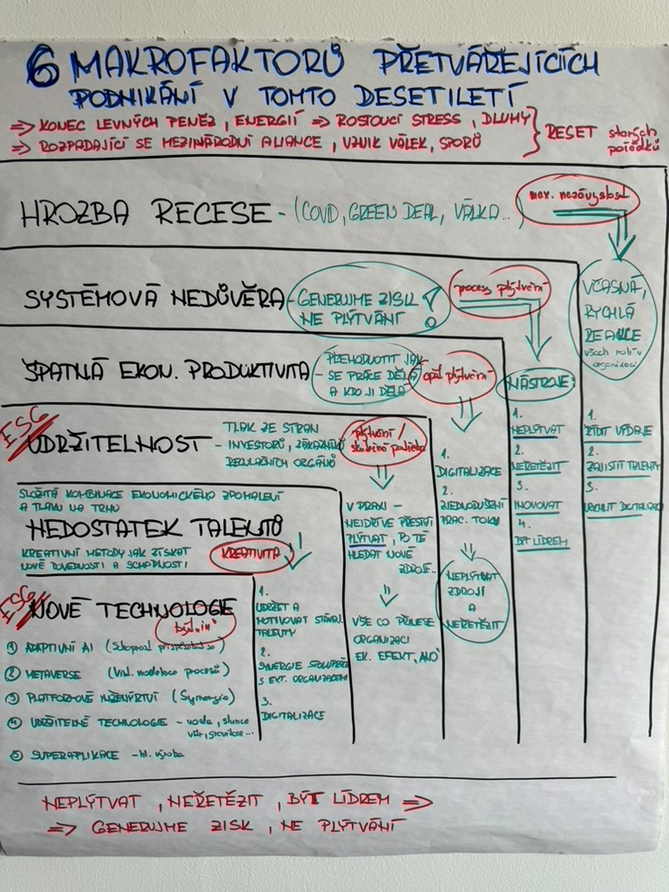 6 MAKROFAKTORŮ PŘETVÁŘEJÍCÍCH
PODNIKÁNÍ V TOMTO DESETILETÍ
⇒ KONEC LEVNÝCH PENĚZ, ENERGIÍ ⇒ ROSTOUCÍ STRESS, DLUHY
⇒ ROZPADAJÍCÍ SE MEZINÁRODNÍ ALIANCE, VZNIK VÁLEK, SPORŮ
RESET starých
pořádků
HROZBA RECESE - (COVID, GREEN DEAL, VÁLKA...)
max. nezávislost
VČASNÁ,
RYCHLÁ
REAKCE
všech
organizací
1.
ŘÍDIT VÝDAJE
2.
ZAJISTIT TALENTY
3.
DIGITALIZACI
SYSTÉMOVÁ NEDŮVĚRA - GENERUJME ZISK
NE PLÝTVÁNÍ!
process plýtvání
NÁSTROJE:
1.
NEPLÝTVAT
2.
NEŘETĚZIT
3.
INOVOVAT
4.
BÝT LÍDREM
ŠPATNÁ EKON. PRODUKTIVITA - PŘEHODNOTIT JAK
SE PRÁCE DĚLÁ
A KDO JI DĚLÁ
opět plýtvání
1.
DIGITALIZACE
2.
ZJEDNODUŠENÍ
PRAC. TOKŮ
NEPLÝTVAT
ZDROJI
A
NEŘETĚZIT
ESG
UDRŽITELNOST - TLAK ZE STRAN
INVESTORŮ, ZÁKAZNÍKŮ
REGULAČNÍCH ORGÁNŮ
plýtvání /
skutečná potřeba
V PRAXI -
NEJDŘÍVE PŘESTAT
PLÝTVAT, PO TÉ
HLEDAT NOVÉ
ZDROJE...
VŠE CO PŘINESE
ORGANIZACI
EK. EFEKT, ANO
SLOŽITÁ KOMBINACE EKONOMICKÉHO ZPOMALENÍ
A TLAKU NA TRHU
NEDOSTATEK TALENTŮ
KREATIVNÍ METODY JAK ZÍSKAT
NOVÉ DOVEDNOSTI A SCHOPNOSTI
KREATIVITA
1.
UDRŽET A
MOTIVOVAT STÁVAJ.
TALENTY
2.
SYNERGIE
S EXT. ORGANIZACEMI
3.
DIGITALIZACE
ESG
NOVÉ TECHNOLOGIE
① ADAPTIVNÍ AI (Schopnost
② METAVERSE procesů)
③ PLATFORMOVÉ INŽENÝRSTVÍ (Synergie)
④ UDRŽITELNÉ TECHNOLOGIE - voda, slunce
vítr, gravitace...
⑤ SUPERAPLIKACE - hl. výroba
NEPLÝTVAT, NEŘETĚZIT, BÝT LÍDREM ⇒
⇒ GENERUJME ZISK, NE PLÝTVÁNÍ